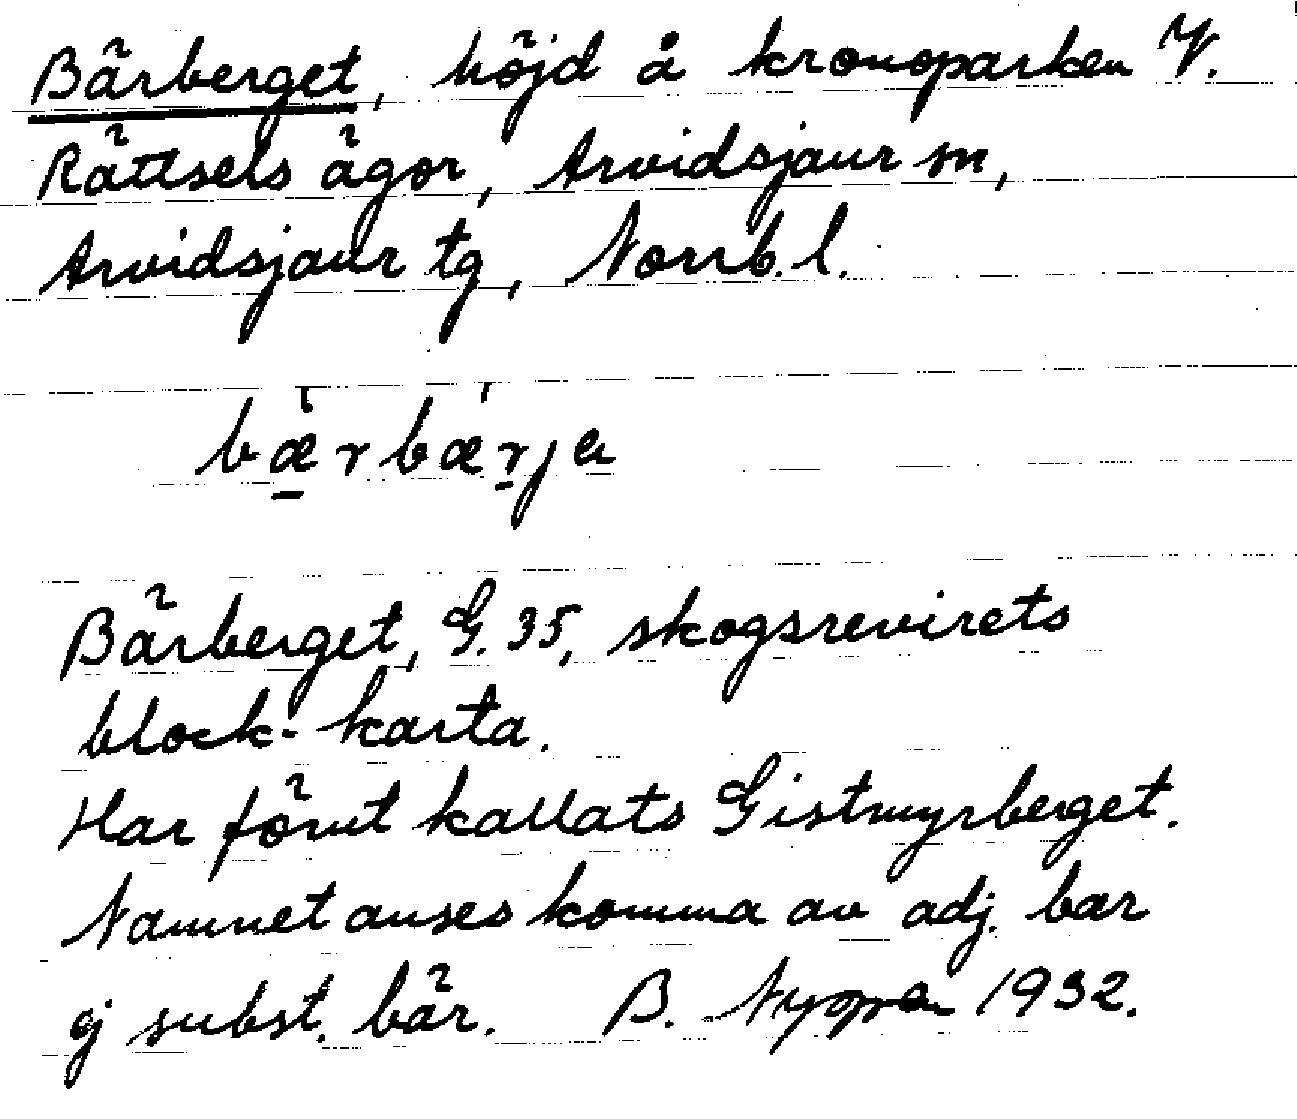 Bärberget, höjd å kronoparken V.
Rättsels ägor, Arvidsjaur sn,
Arvidsjaur tg, Norrb. l.
bæ̲̀rbǽr̲ja
Bärberget, G. 35, skogsrevirets
block-karta.
Har förut kallats Gistmyrberget.
Namnet anses komma av adj. bar
ej subst. bär. B. Nyppa 1932.